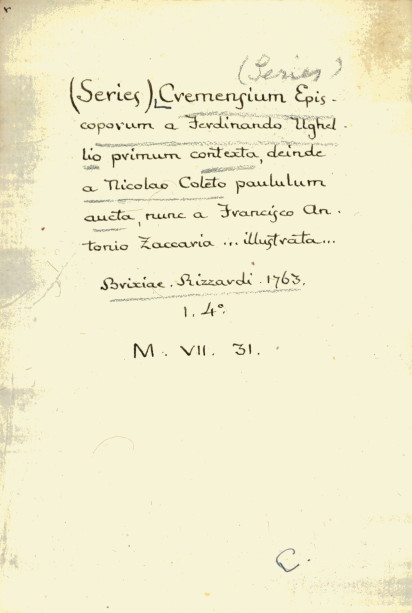 (Series)
(Series) Cremensium Epis-
coporum a Ferdinando Ughel-
lio primum contexta, deinde
a Nicolao Coleto paululum
aucta, nunc a Francisco An-
tonio Zaccaria ... illustrata ...
Brixiae. Rizzardi. 1763.
1. 4°.
M. VII. 31.
C.